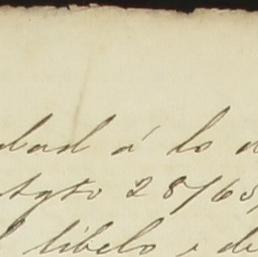 dad á lo d
Agto 28/65
l libelo e de